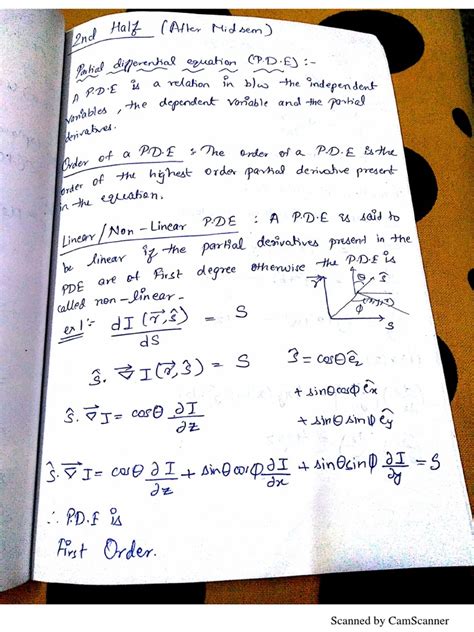 2nd Half (After Midsem)
Partial differential equation (P.D.E) :-
A P.D.E is a relation in b/w the independent
variables, the dependent variable and the partial
derivatives.
Order of a P.D.E : The order of a P.D.E is the
order of the highest order partial derivative present
in the equation.
Linear/Non-Linear PDE : A P.D.E is said to
be linear if the partial derivatives present in the
PDE are of First degree otherwise the P.D.E is
called non-linear.
ex1:- dI(r⃗,ŝ)/dS = S
ŝ.∇⃗I(r⃗,ŝ) = S
ŝ = cosθ êz
+ sinθcosφ êx
+ sinθ sinφ êy
ŝ.∇⃗I = cosθ ∂I/∂z
ŝ.∇⃗I = cosθ ∂I/∂z + sinθcosφ ∂I/∂x + sinθsinφ ∂I/∂y = S
∴ P.D.E is
First Order.
r⃗
θ
ŝ
φ
S
Scanned by CamScanner